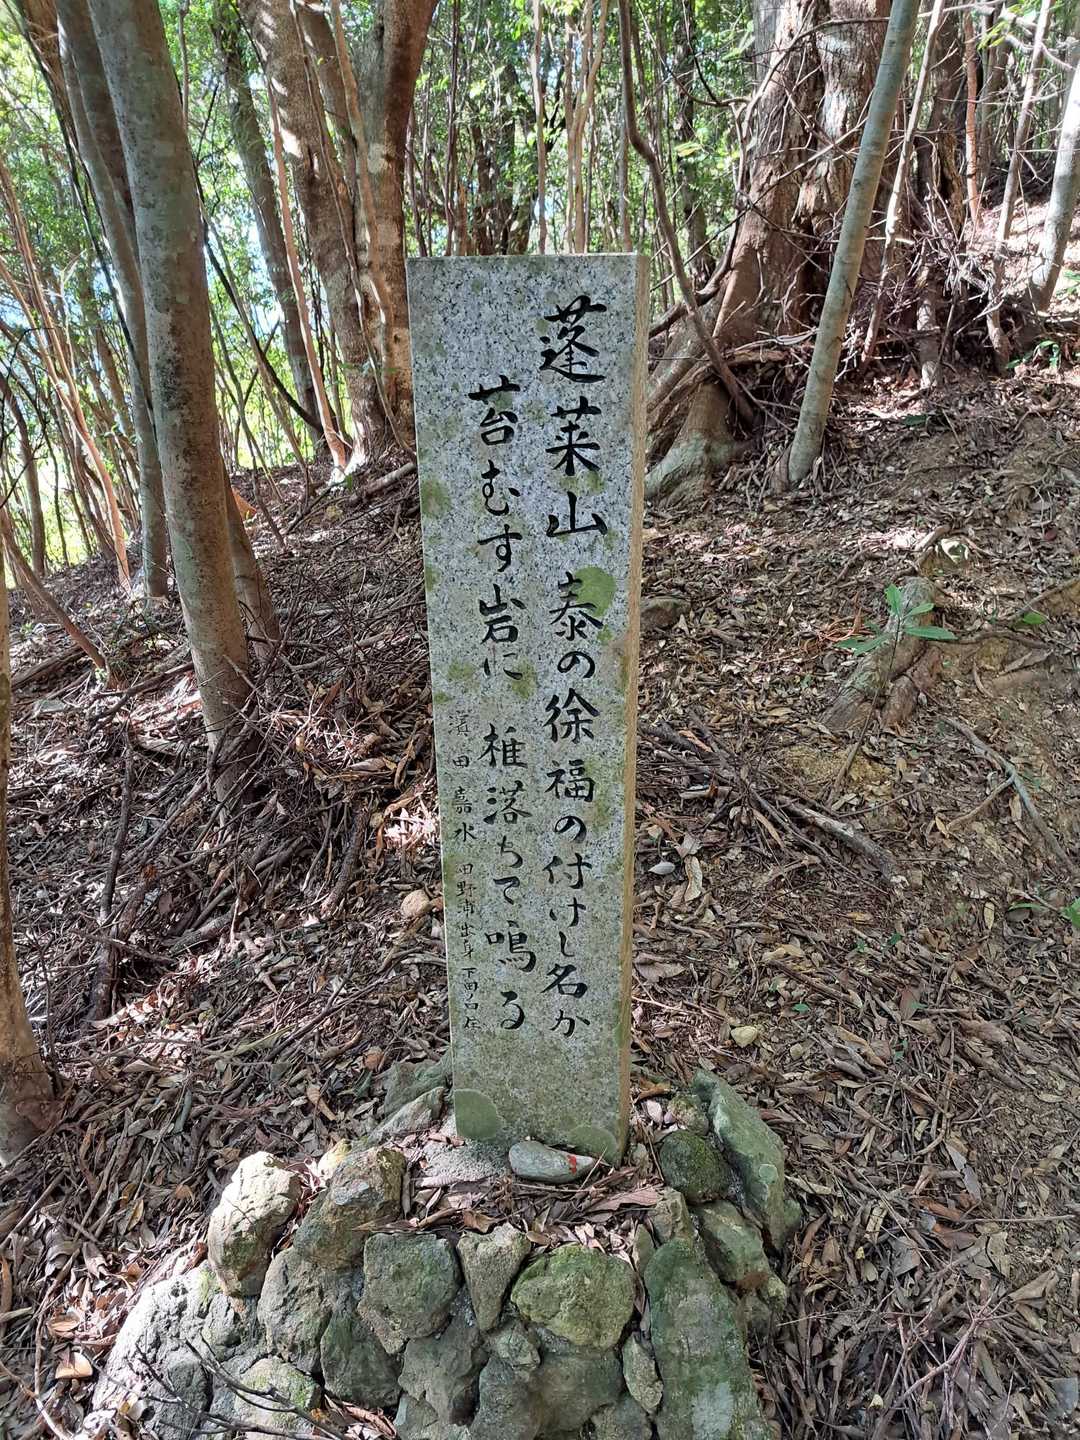 蓬莱山 泰の徐福の付けし名か
苔むす岩に 椎落ちて鳴る
濱田 嘉水 田野浦出身 下田ノ口在